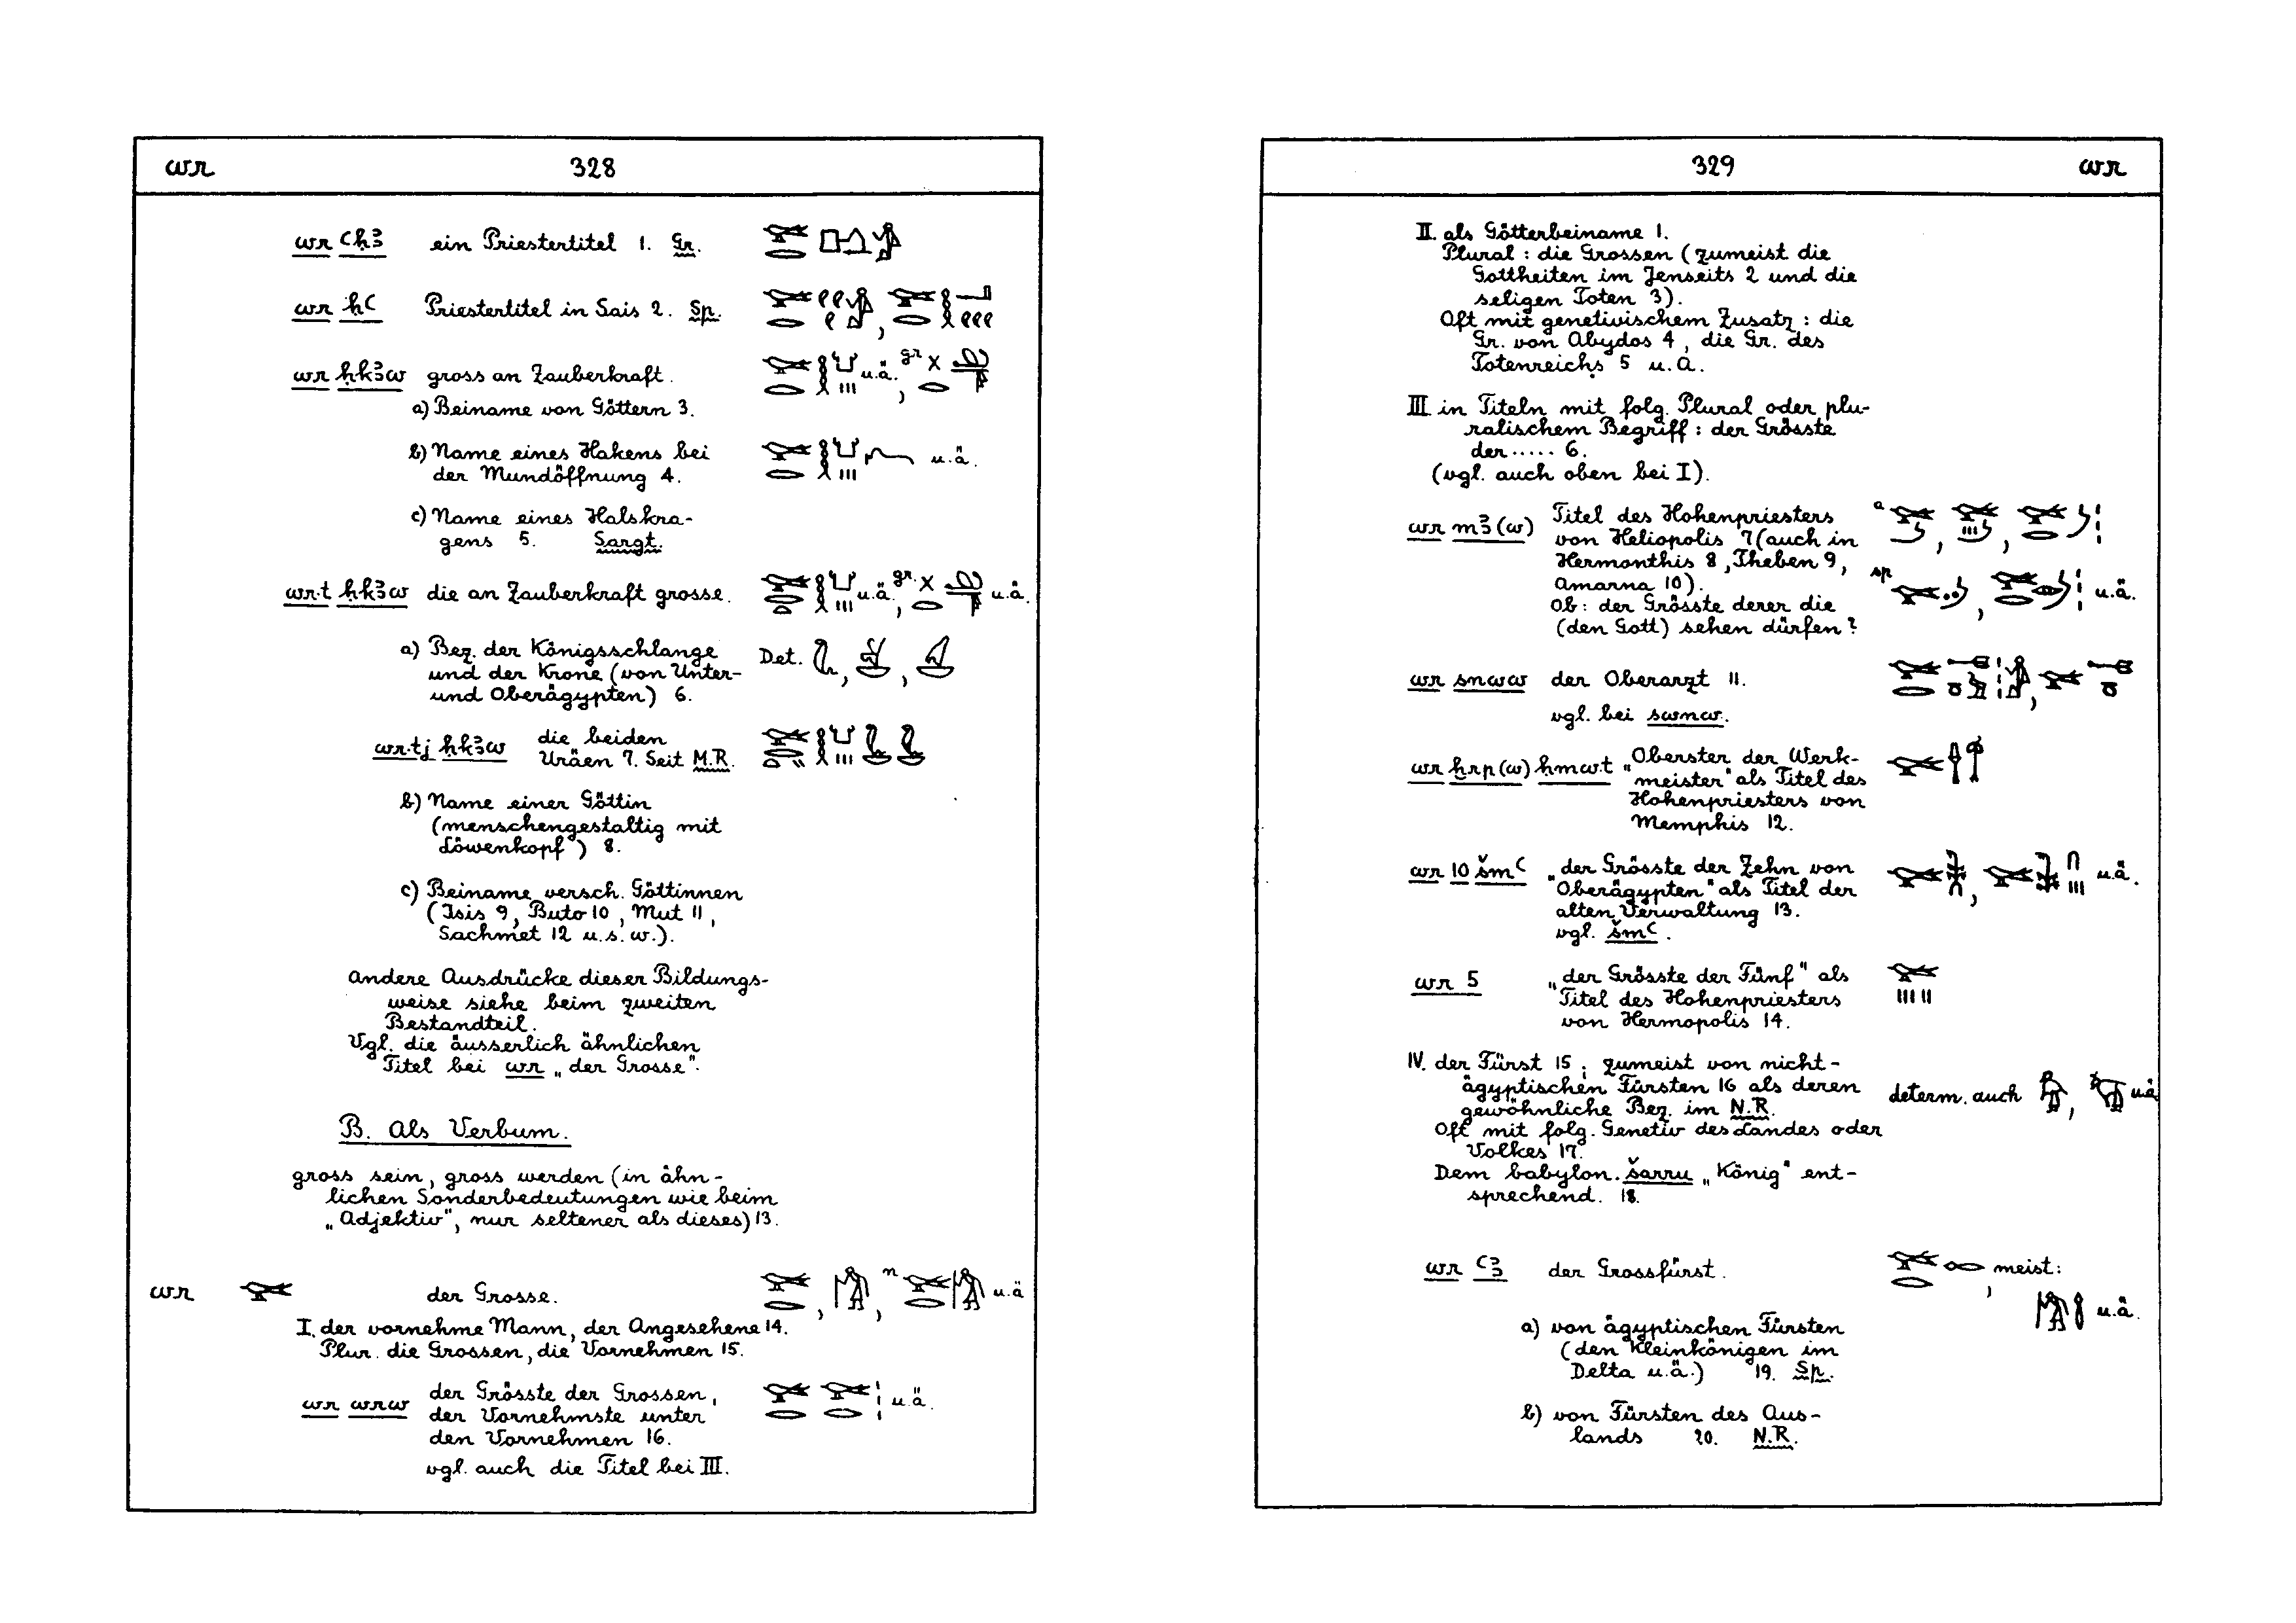 wr 328
wr ꜥḥꜣ ein Priestertitel 1. Gr.
wr ḥꜥ Priestertitel in Sais 2. Sp.
wr ḥkꜣw gross an Zauberkraft. u.ä. gr
a) Beiname von Göttern 3.
b) Name eines Hakens bei u.ä.
der Mundöffnung 4.
c) Name eines Halskra-
gens 5. Sargt.
wr.t ḥkꜣw die an Zauberkraft grosse. u.ä. gr. u.ä.
a) Bez. der Königsschlange Det.
und der Krone (von Unter-
und Oberägypten) 6.
wr.tj ḥkꜣw die beiden
Uräen 7. Seit M.R.
b) Name einer Göttin
(menschengestaltig mit
Löwenkopf) 8.
c) Beiname versch. Göttinnen
(Isis 9, Buto 10, Mut 11,
Sachmet 12 u.s.w.).
andere Ausdrücke dieser Bildungs-
weise siehe beim zweiten
Bestandteil.
Vgl. die äusserlich ähnlichen
Titel bei wr „der Grosse".
B. Als Verbum.
gross sein, gross werden (in ähn-
lichen Sonderbedeutungen wie beim
„Adjektiv", nur seltener als dieses) 13.
wr der Grosse. n u.ä
I. der vornehme Mann, der Angesehene 14.
Plur. die Grossen, die Vornehmen 15.
wr wrw der Grösste der Grossen, u.ä.
der Vornehmste unter
den Vornehmen 16.
vgl. auch die Titel bei III.
329 wr
II. als Götterbeiname 1.
Plural: die Grossen (zumeist die
Gottheiten im Jenseits 2 und die
seligen Toten 3).
Oft mit genetivischem Zusatz: die
Gr. von Abydos 4, die Gr. des
Totenreichs 5 u.a.
III. in Titeln mit folg. Plural oder plu-
ralischem Begriff: der Grösste
der ..... 6.
(vgl. auch oben bei I).
wr mꜣ(w) Titel des Hohenpriesters a
von Heliopolis 7 (auch in
Hermonthis 8, Theben 9,
Amarna 10). sp u.ä.
Ob: der Grösste derer die
(den Gott) sehen dürfen?
wr snww der Oberarzt 11.
vgl. bei swnw.
wr ḫrp(w) ḥmwt „Oberster der Werk-
meister" als Titel des
Hohenpriesters von
Memphis 12.
wr 10 šmꜥ „der Grösste der Zehn von u.ä.
Oberägypten" als Titel der
alten Verwaltung 13.
vgl. šmꜥ.
wr 5 „der Grösste der Fünf" als
Titel des Hohenpriesters
von Hermopolis 14.
IV. der Fürst 15; zumeist von nicht-
ägyptischen Fürsten 16 als deren determ. auch u.ä
gewöhnliche Bez. im N.R.
Oft mit folg. Genetiv des Landes oder
Volkes 17.
Dem babylon. šarru „König" ent-
sprechend. 18.
wr ꜥꜣ der Grossfürst. meist:
u.ä.
a) von ägyptischen Fürsten
(den Kleinkönigen im
Delta u.ä.) 19. Sp.
b) von Fürsten des Aus-
lands 20. N.R.